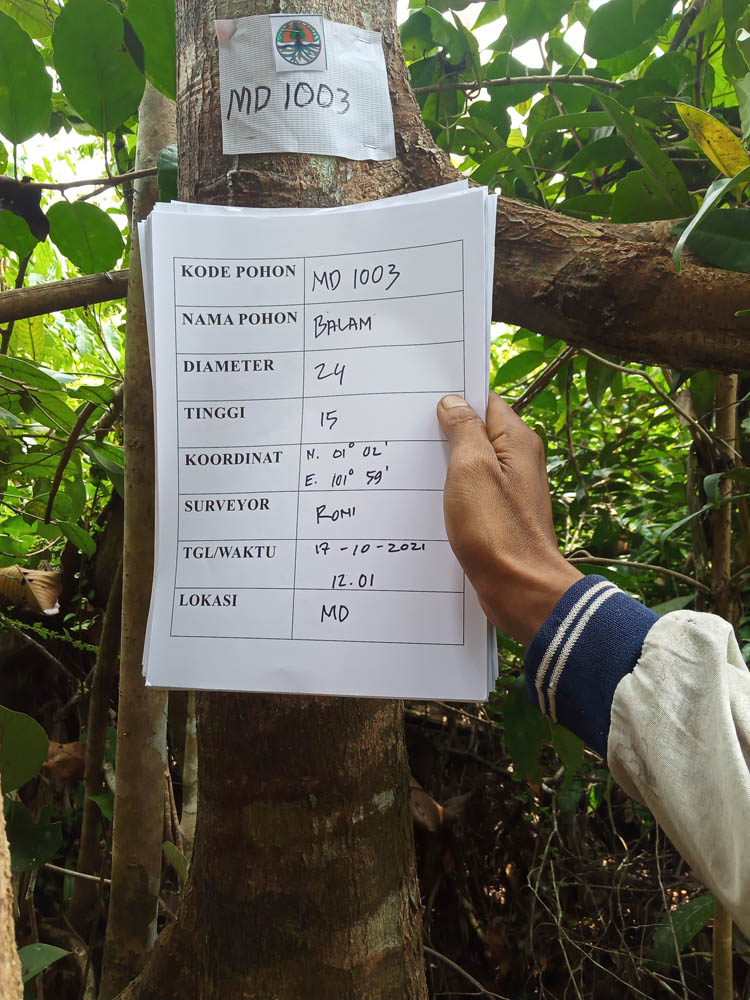 MD 1003
KODE POHON MD 1003
NAMA POHON BALAM
DIAMETER 24
TINGGI 15
KOORDINAT N. 01° 02'
E. 101° 59'
SURVEYOR ROMI
TGL/WAKTU 17-10-2021
12.01
LOKASI MD